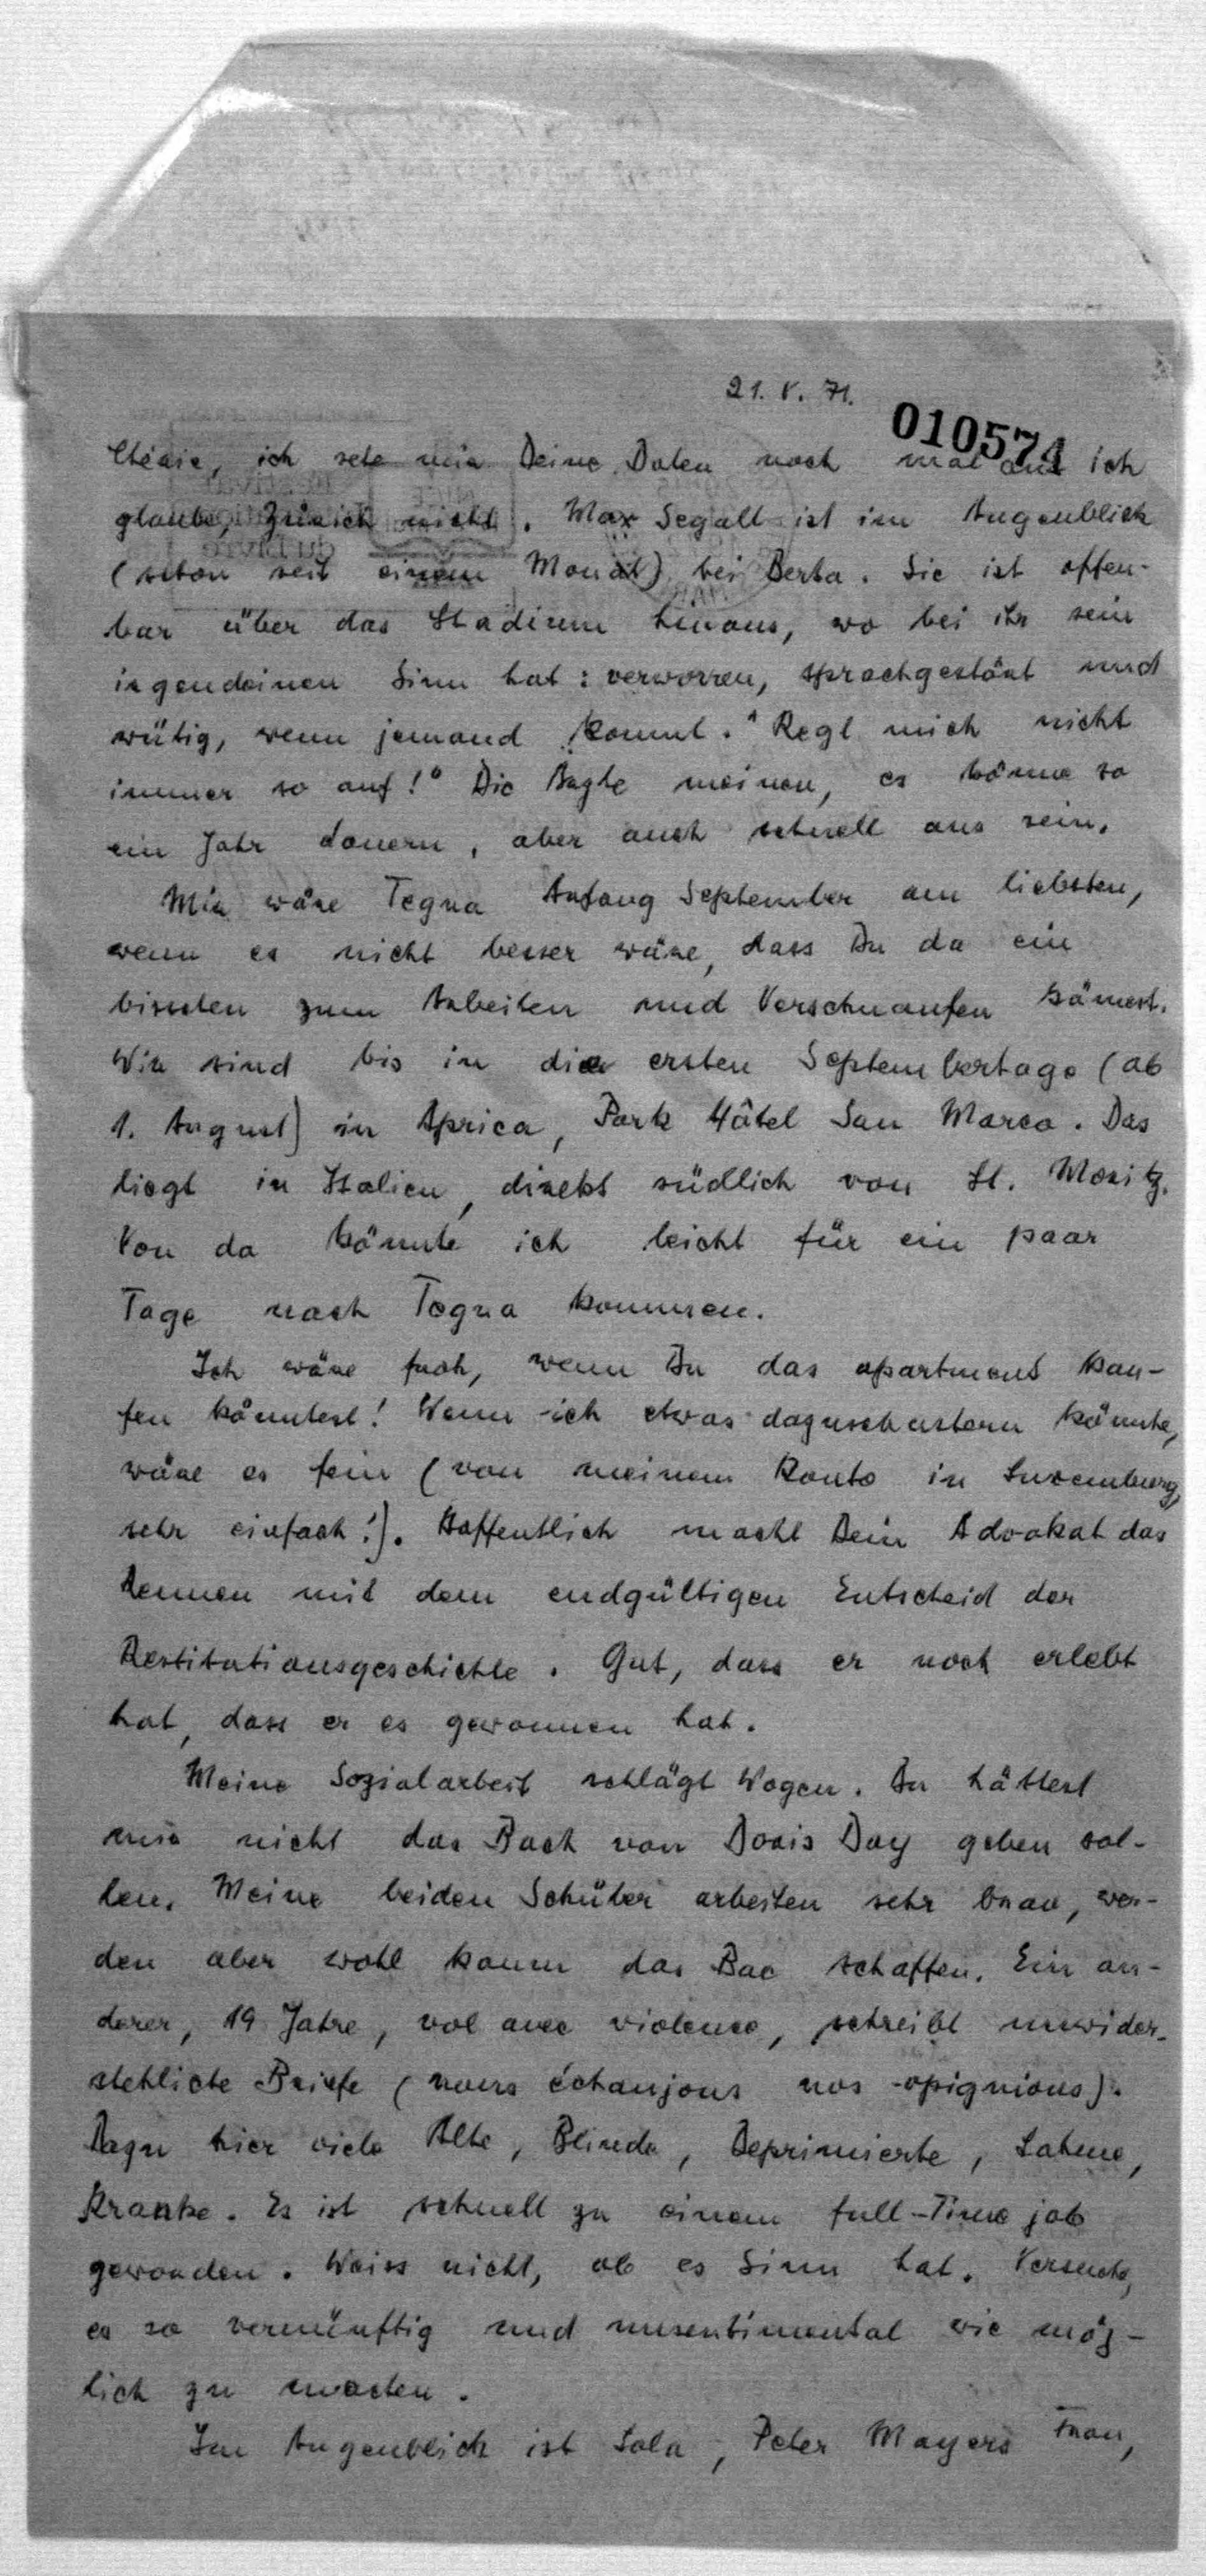 21. V. 71.
010574
Chérie, ich sehe mir Deine Daten noch mal an: ich
glaube, Zürich nicht. Max Segall ist im Augenblick
(schon seit einem Monat) bei Berta. Sie ist offen-
bar über das Stadium hinaus, wo bei ihr sein
irgendeinen Sinn hat: verworren, sprachgestört und
wütig, wenn jemand kommt. "Regt mich nicht
immer so auf!" Die Ärzte meinen, es könne so
ein Jahr dauern, aber auch schnell aus sein.
Mir wäre Tegna Anfang September am liebsten,
wenn es nicht besser wäre, dass Du da ein
bisschen zum Arbeiten und Verschnaufen kämest.
Wir sind bis in die ersten Septembertage (ab
1. August) in Aprica, Park Hôtel San Marco. Das
liegt in Italien, direkt südlich von St. Moritz.
Von da könnte ich leicht für ein paar
Tage nach Tegna kommen.
Ich wäre froh, wenn Du das apartment kau-
fen könntest! Wenn ich etwas dazuschustern könnte,
wäre es fein (von meinem Konto in Luxemburg,
sehr einfach!). Hoffentlich macht Dein Advokat das
Rennen mit dem endgültigen Entscheid der
Restitutionsgeschichte. Gut, dass er noch erlebt
hat, dass er es gewonnen hat.
Meine Sozialarbeit schlägt Wogen. Du hättest
mir nicht das Buch von Doris Day geben sol-
len. Meine beiden Schüler arbeiten sehr brav, wer-
den aber wohl kaum das Bac schaffen. Ein an-
derer, 19 Jahre, vol avec violence, schreibt unwider-
stehliche Briefe (nous échanjons nos opignions).
Dazu hier viele Alte, Blinde, Deprimierte, Lahme,
Kranke. Es ist schnell zu einem full-Time job
geworden. Weiss nicht, ob es Sinn hat. Versuche,
es so vernünftig und unsentimental wie mög-
lich zu machen.
Im Augenblick ist Lola, Peter Mayers Frau,